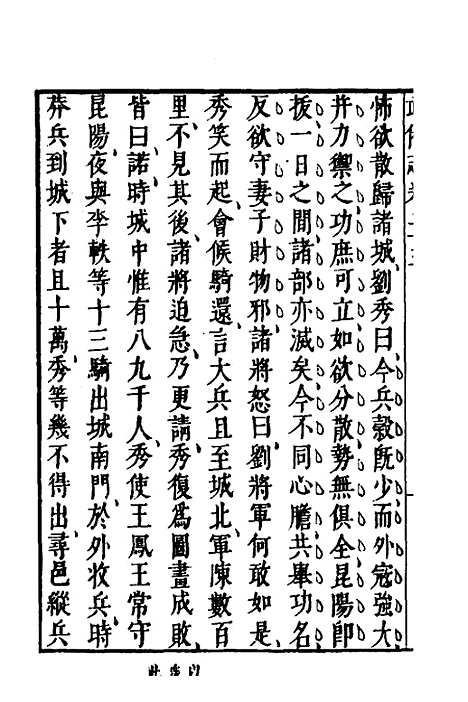 怖欲散歸諸城劉秀曰今兵穀旣少而外寇強大
并力禦之功庶可立如欲分散勢無俱全昆陽卽
拔一日之間諸部亦滅矣今不同心膽共舉功名
反欲守妻子財物邪諸將怒曰劉將軍何敢如是
秀笑而起會候騎還言大兵且至城北軍陳數百
里不見其後諸將迫急乃更請秀復爲圖畫成敗
皆曰諾時城中惟有八九千人秀使王鳳王常守
昆陽夜與李軼等十三騎出城南門於外收兵時
莽兵到城下者且十萬秀等幾不得出尋邑縱兵